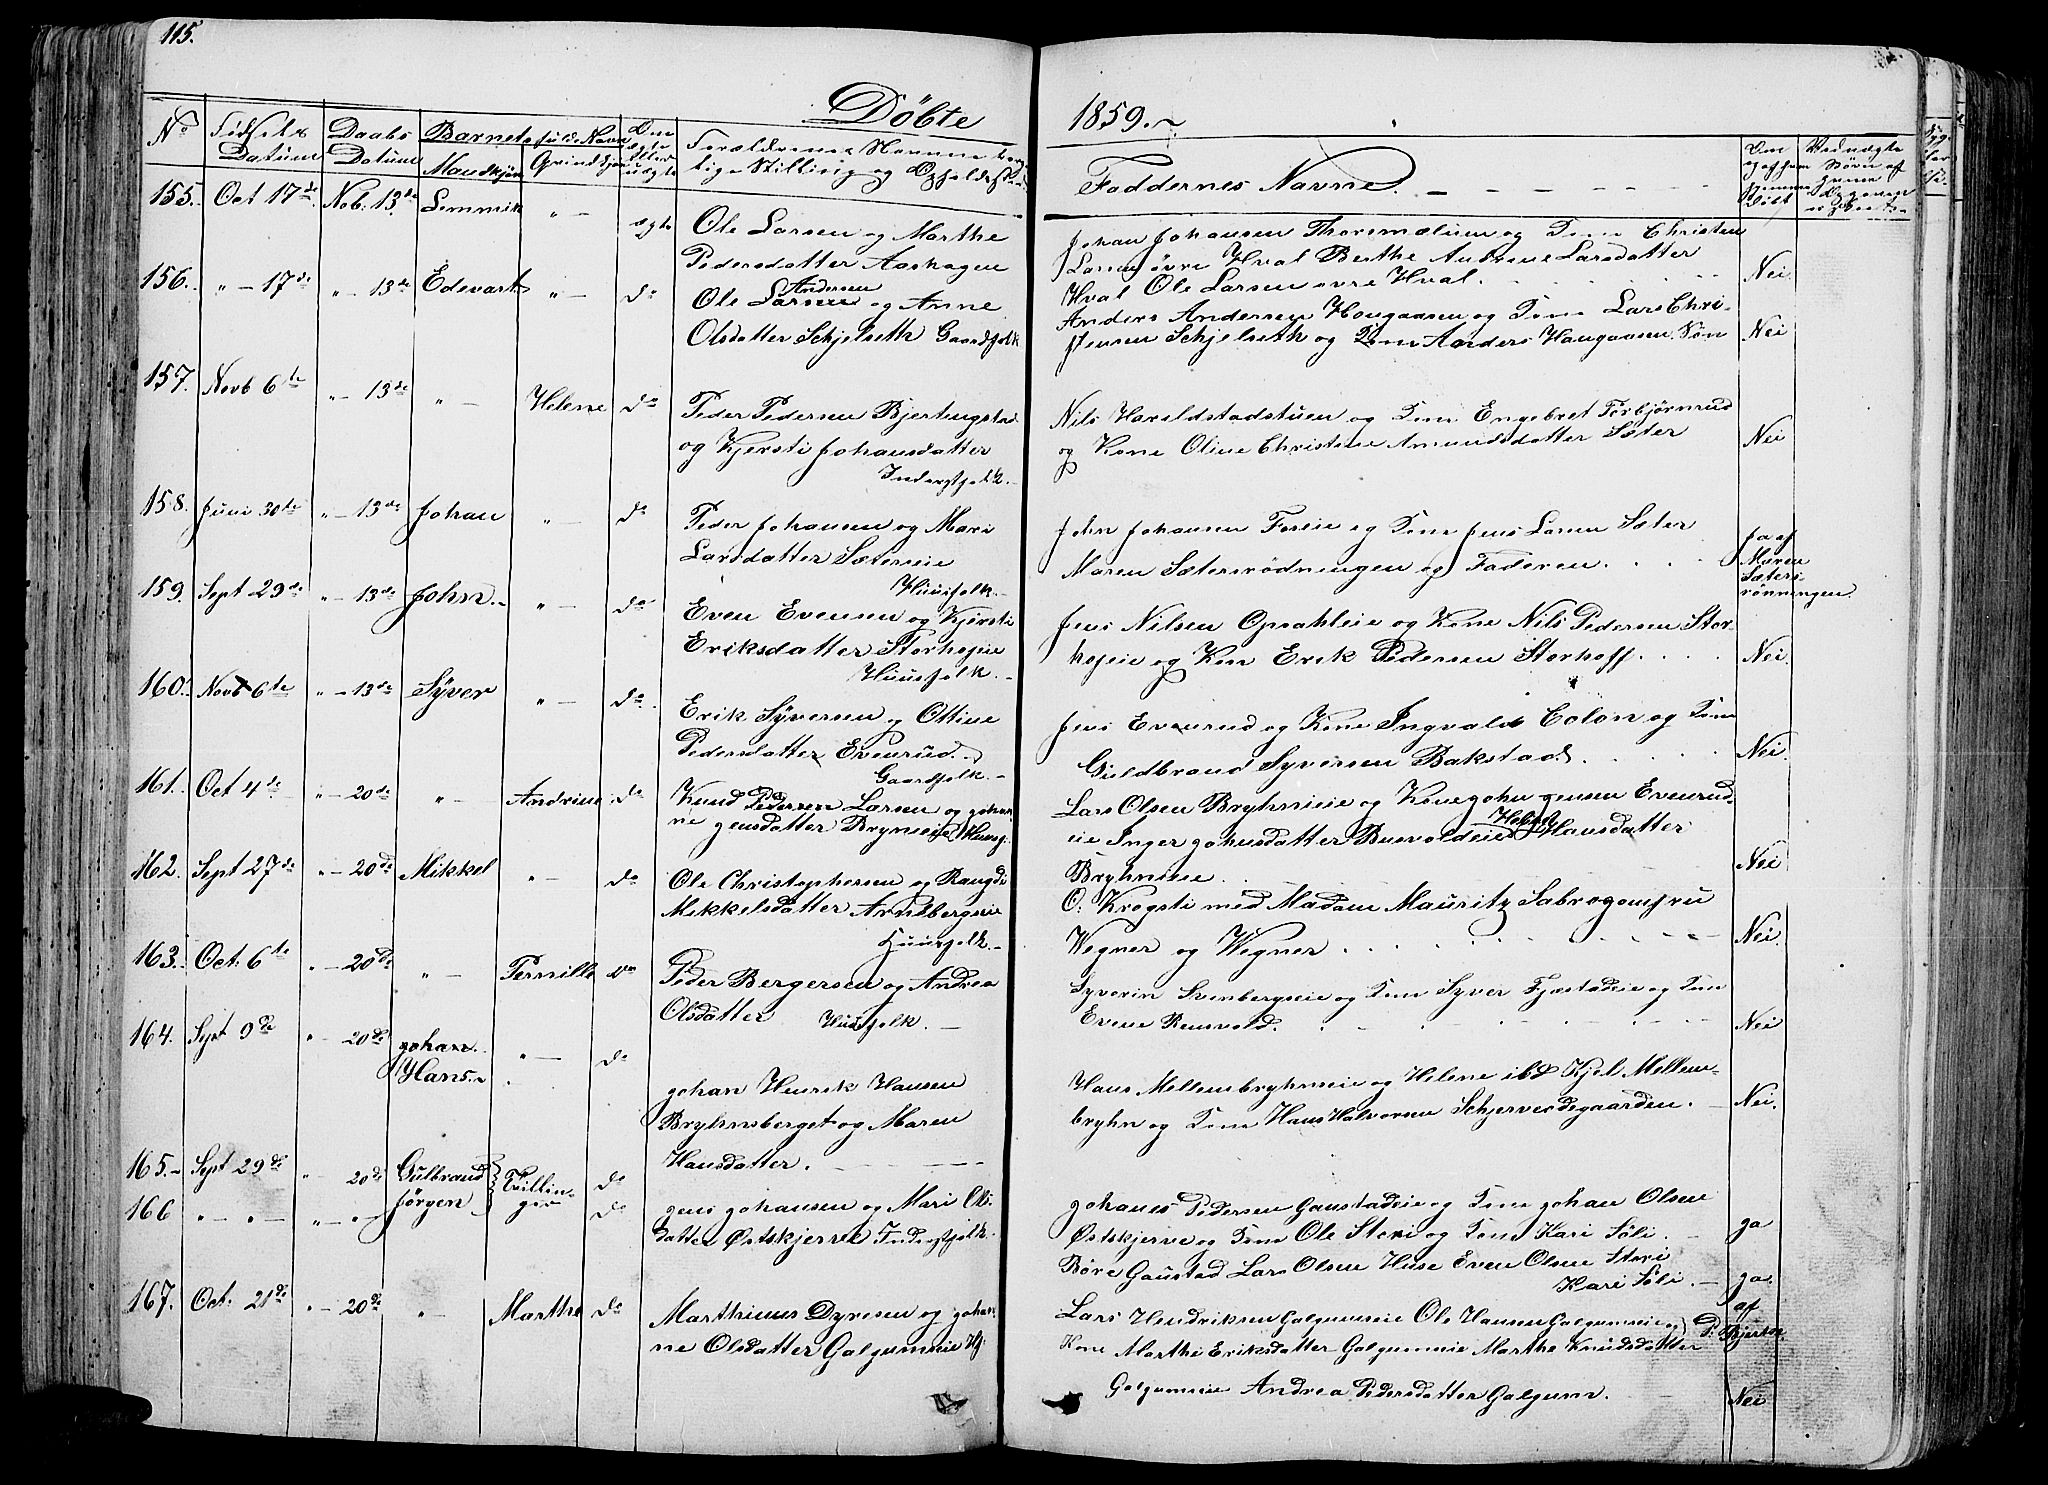 115.
Döbte 1859.
No Födsels Datum Daabs Datum Barnets fulde Navn Mandkjøn Qvindekjøn Om ægte eller uægte Forældrenes Navne
Faddernes Navne.
155. Oct 17de Nob. 13de Lemmik " — ægte Ole Larsen og Marthe
Pedersdatter Aashagen
Johan Johansen Thoresmælum og Kone Christen
Larsen övre Hval Berthe Larsdatter
Hval Ole Larsen övre Hval. Nei.
156. " — 17de " — 13de Edevart " — do Ole Larsen Andersen og Anne
Olsdatter Schjelseth Gaardfolk
Anders Andersen Haugaasen og Kone Lars Chri-
stensen Schjelseth og Kone Anders Haugaasen Søn Nei
157. Novb 6te " — 13de " — Helene do Peder Pedersen Bjertungstad
og Kjersti Johansdatter
Inderstfolk.
Nils Haraldstadstuen og Kone Engebret Torbjørnrud
og Kone Oline Christine Amundsdatter Sæter Nei
158. Juni 30te " — 13de Johan " — do Peder Johansen og Mari
Larsdatter Sætereie
Huusfolk.
John Johannesen og Kone Jens Larsen Sæter
Maren Sætersrødningen og Faderen. Ja af
Maren
Sæters
rønningen.
159. Sept 29de " — 13de John. " — do Even Evensen og Kjersti
Eriksdatter Storhofeie
Huusfolk.
Jens Nilsen Opsahleie og Kone Nils Pedersen Stor-
hofeie og Kon Erik Pedersen Storhoff. Nei.
160. Novb 6te " — 13de Syver " — do. Erik Syversen og Ottine
Pedersdatter Evenrud.
Gaardfolk.
Jens Evenrud og Kone Ingvald Colon og Kone
Guldbrand Syversen Bakstad. Nei
161. Oct 4de " — 20de " — Andrine do Knud Pedersen Larsen og Johan-
ne Jensdatter Bryneie
Lars Olsen Bryhneie og Kone John Jensen Evenrud-
eie Inger Johnsdatter Hansdatter
Bryhneie. Nei
162. Sept 27de " — 20de Mikkel " — do Ole Christophersen og Rangdi
Mikkelsdatter Arnebergseie
Huusfolk.
O. Krogsti med Madam Mauritz
Wegner og Wegner. Nei.
163. Oct. 6te " — 20de " — Pernille do Peder Bergersen og Andrea
Olsdatter Huusfolk.
Syverin Svenbergseie og Kone Syver Fjøstadeie og Kone
Even Rensvold. Nei
164. Sept 9de " — 20de Johan
Hans. " — do Johan Henrik Hansen
Bryhnsberget og Maren
Hansdatter.
Hans Mellembryhneie og Helene ibd Kjel Mellem-
bryhn og Kone Hans Halvorsen Schjerverdegaarden. Nei.
165. Sept 29de " — 20de Gulbrand Tvillin- do
166 " — " — " — " — Jörgen ger do
Jens Johansen og Mari Ols-
datter Østskjerve Inderstfolk.
Johanes Pedersen Gaustadeie og Kone Johan Olsen
Østskjerve og Kone Ole Stori og Kone Kari Söli. Ja
Böre Gaustad Lars Olsen Huse Even Olsen Stori
Kari Söli. Ja.
af
167. Oct. 21de " — 20de " — Marthe do Marthinus Dyresen og Johan-
ne Olsdatter Galgumeie
Lars Hendriksen Galgumeie Ole Hansen Galgumeie og
Kone Marthe Eriksdatter Galgumeie Marthe Knudsdatter
Galgumeie Andrea Pedersdatter Galgum. Nei